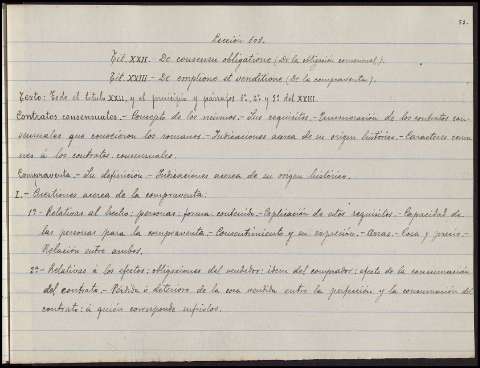 53.
Lección 60ª.
Tít. XXII. De consensu obligatione (De la obligación consensual).
Tít. XXIII - De emptione et venditione (De la compraventa).
Texto: Todo el título XXII, y el principio y párrafos 1º, 2º y 3º del XXIII.
Contratos consensuales. - Concepto de los mismos. - Sus requisitos. - Enumeración de los contratos con-
sensuales que conocieron los romanos. - Indicaciones acerca de su origen histórico. - Caracteres comu-
nes á los contratos consensuales.
Compraventa. - Su definición. - Indicaciones acerca de su origen histórico.
I. - Cuestiones acerca de la compraventa.
1ª - Relativas al hecho; personas; forma; contenido. - Aplicación de estos requisitos. - Capacidad de
las personas para la compraventa. - Consentimiento y su expresión. - Arras. - Cosa y precio. -
Relación entre ambos.
2ª - Relativas á los efectos; obligaciones del vendedor; idem del comprador; efecto de la consumación
del contrato. - Pérdida ó deterioro de la cosa vendida entre la perfección y la consumación del
contrato; á quién corresponde sufrirlos.